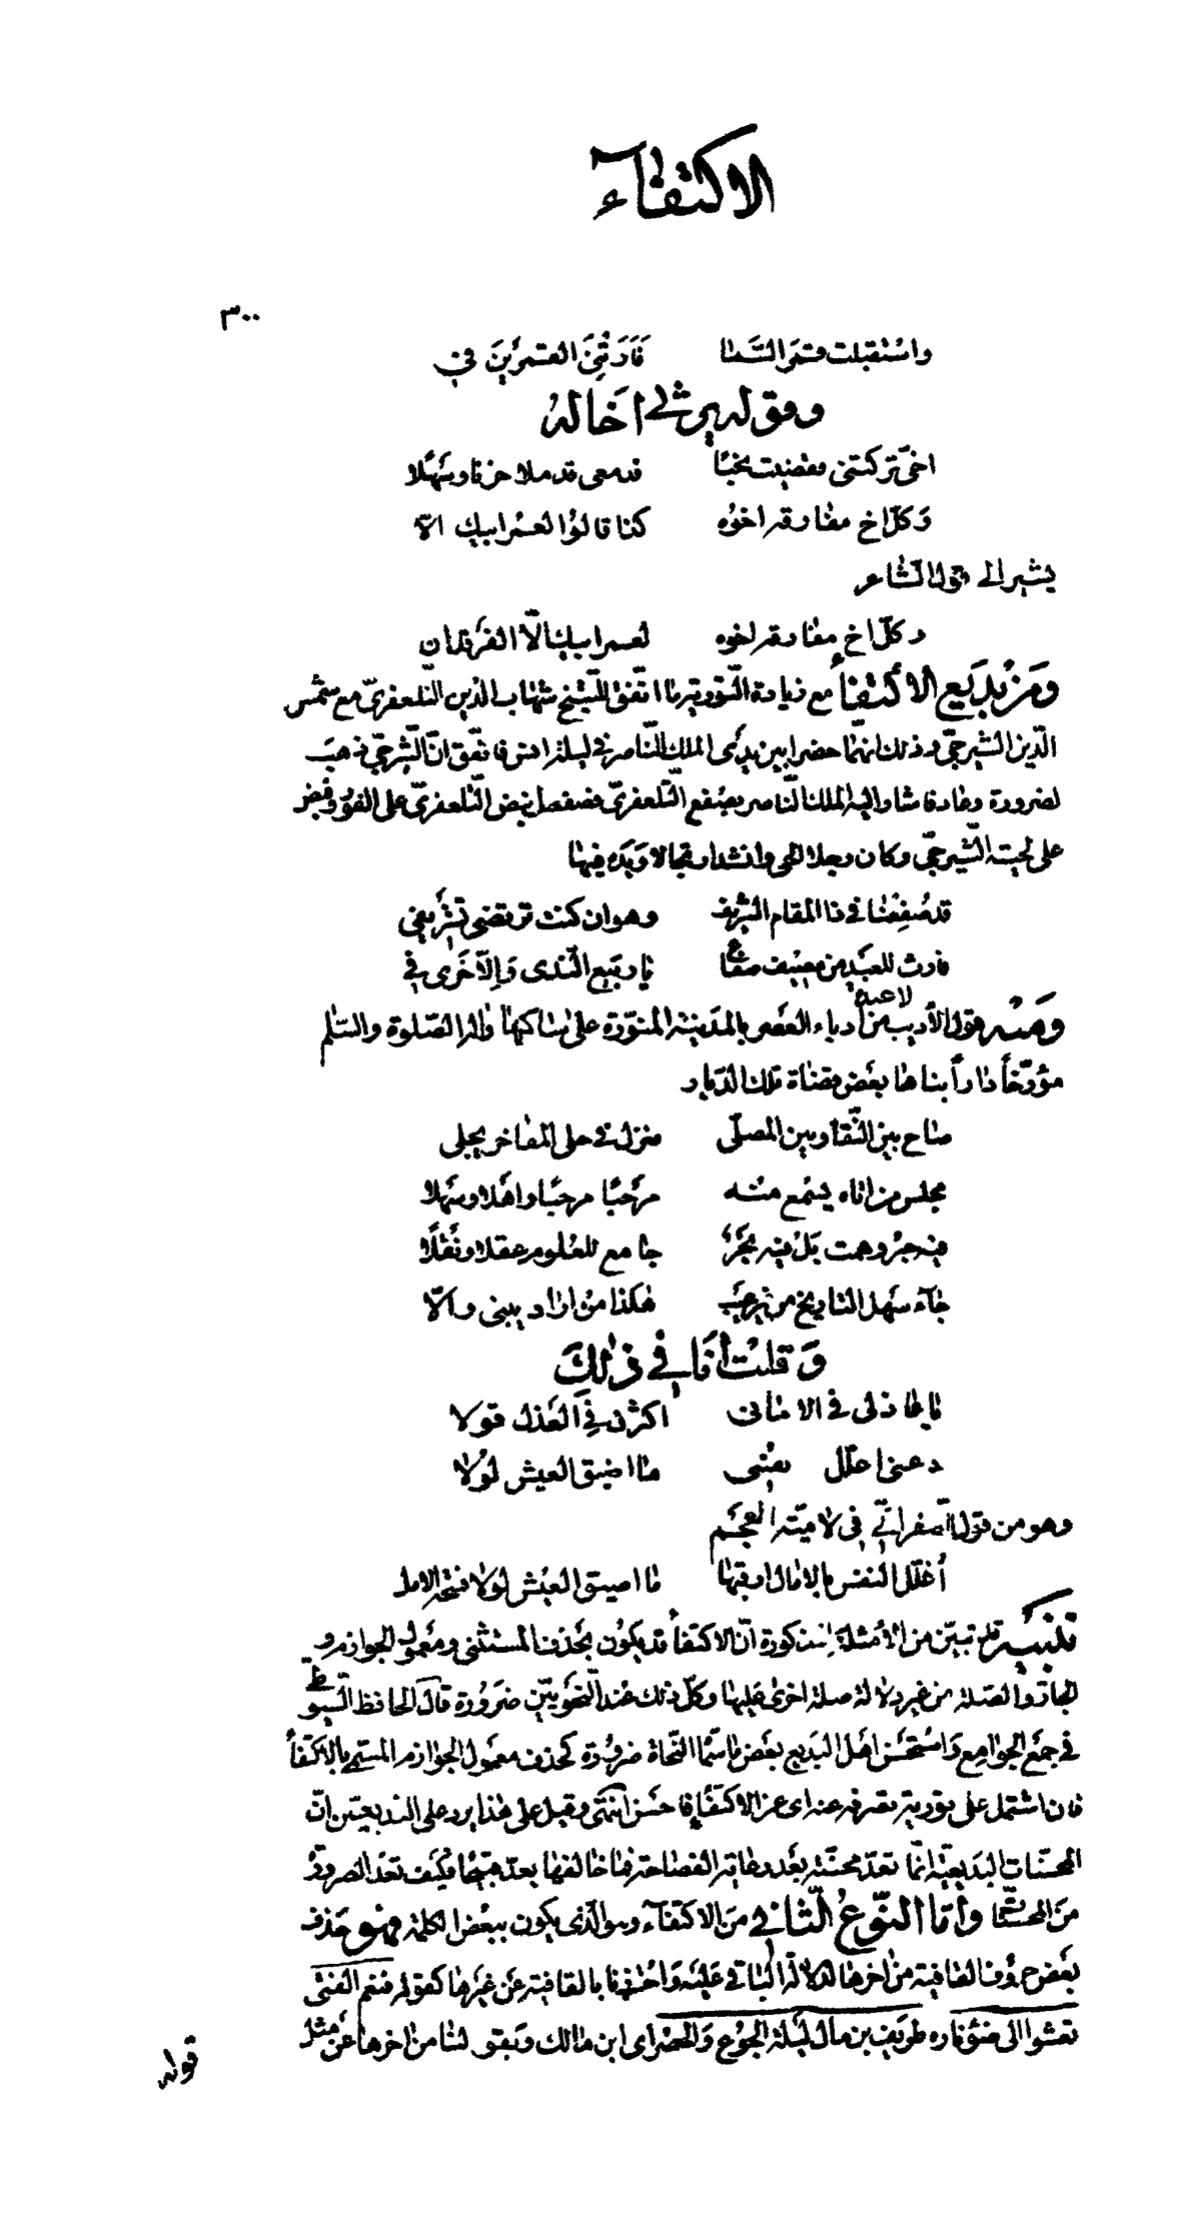 الاكتفآء
٣٠٠
واستقبلت قمر السما فأرتني القمرين في
وقوله يرثي اخا له
اخي تركتني وقضيت نحبا فدمعي قد ملا حزنا وسهلا
وكل اخ مفارقه اخوه كذا قالوا لعمر ابيك الا
يشير الى قول الشاعر
وكل اخ مفارقه اخوه لعمر ابيك الا الفرقدان
ومن بديع الاكتفاء مع زيادة التورية ما اتفق للشيخ شهاب الدين التلعفري مع شمس
الدين الشيرجي وذلك انهما حضرا بين يدي الملك الناصر في ليلة انس فاتفق ان الشيرجي ذهب
لضرورة وعاد فاشار اليه الملك الناصر بصفع التلعفري فصفعه فنهض التلعفري على الفور وقبض
على لحية الشيرجي وكان رجلا الحى وانشد ارتجالا ويده فيها
قد صفعنا في ذا المقام الشريف وهو ان كنت ترتضي تشريفي
فارث للعبد من مصيف صفاع يا ربيع الندى والا خرى في
ومنه قول الأديب من ادباء العصر بالمدينة المنورة على ساكنها وآله الصلوة والسلم
مؤرخا دارا بناها بعض قضاة تلك الديار
صاح بين النقا وبين المصلى منزل في حلى المفاخر يجلى
مجلس من اتاه يسمع منه مرحبا مرحبا واهلا وسهلا
فيه حبر وهمت بل فيه بحر جامع للعلوم عقلا ونقلا
جآء سهل التاريخ من غير هكذا من اراد يبني والا
وقلت أنا في ذلك
يا عاذلي في الاماني اكثرت في العذل قولا
دعني اعلل نفسي ما اضيق العيش لولا
وهو من قول في لامية العجم
أعلل النفس بالامال ارقبها ما اضيق العيش لولا فسحة الامل
تنبيه قد تبين من الأمثلة المذكورة ان الاكتفاء قد يكون بحذف المستثنى ومعمول الجوازم و
الجار والصلة من غير دلالة صلة اخرى عليها وكل ذلك عند النحويين ضرورة قال الحافظ السيوطي
في جمع الجوامع واستحسن اهل البديع بعض ما سماه النحاة ضرورة كحذف معمول الجوازم المسمى بالاكتفاء
فان اشتمل على تورية تصرفه عنه اي عن الاكتفاء فاحسن انتهى وقيل على هذا يرد على البديعيين ان
المحسنات البديعية انما تعد محسنة بعد رعاية الفصاحة فما خالفها يعد قبيحا فكيف تعد الضرورة
من المحسنات وأما النوع الثاني من الاكتفآء وهو الذي يكون ببعض الكلمة فهو حذف
بعض حروف القافية من اخرها لدلالة الباقي عليه واحترزنا بالقافية عن غيرها كقوله فنعم الفتى
تعشوا الى ضوء ناره طريف بن مال ليلة الجوع والخصر اي ابن مالك وبقولنا من اخرها عن مثل
قوله